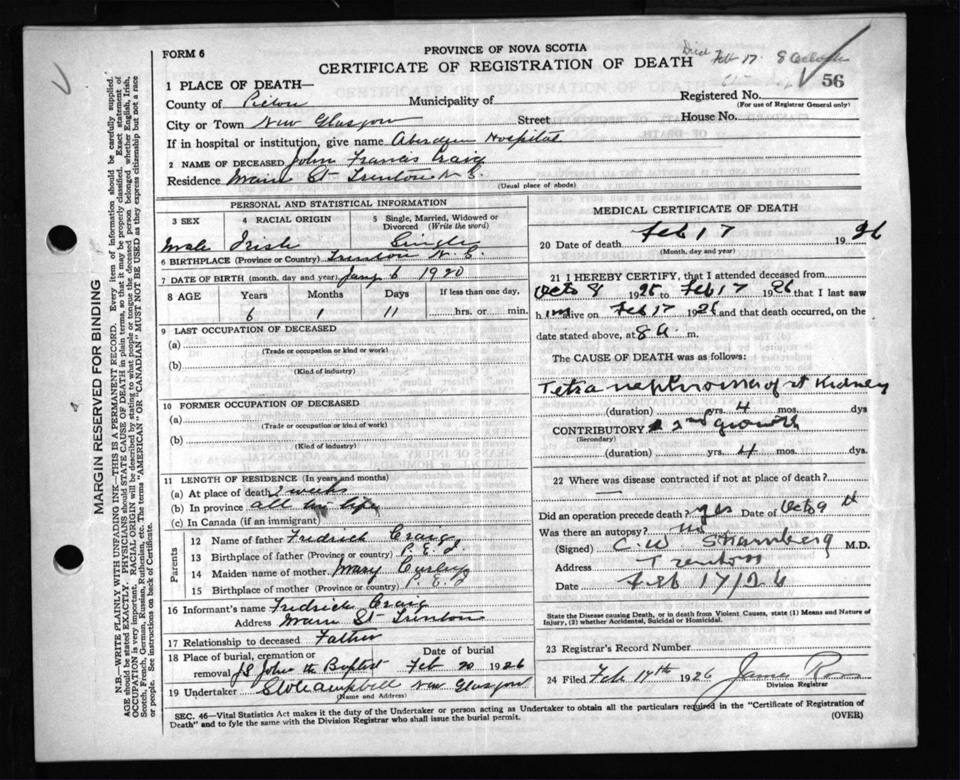 FORM 6
PROVINCE OF NOVA SCOTIA
CERTIFICATE OF REGISTRATION OF DEATH
Died Feb 17. 8 Oclock
56
1 PLACE OF DEATH—
County of Pictou Municipality of
Registered No.
(For use of Registrar General only)
City or Town New Glasgow Street House No.
If in hospital or institution, give name Aberdeen Hospital
2 NAME OF DECEASED John Francis Craig
Residence Main St Trenton N.S.
(Usual place of abode)
PERSONAL AND STATISTICAL INFORMATION
3 SEX
Male
4 RACIAL ORIGIN
Irish
5 Single, Married, Widowed or Divorced (Write the word)
Single
6 BIRTHPLACE (Province or Country) Trenton N.S.
7 DATE OF BIRTH (month, day and year) Jany 6 1920
8 AGE Years Months Days If less than one day,
6 1 11 hrs. or min.
9 LAST OCCUPATION OF DECEASED
(a)
(Trade or occupation or kind or work)
(b)
(Kind of industry)
10 FORMER OCCUPATION OF DECEASED
(a)
(Trade or occupation or kind of work)
(b)
(Kind of industry)
11 LENGTH OF RESIDENCE (In years and months)
(a) At place of death 2 weeks
(b) In province all his life
(c) In Canada (if an immigrant)
Parents
12 Name of father Fredrick Craig
13 Birthplace of father (Province or country) P.E.I.
14 Maiden name of mother Mary
15 Birthplace of mother (Province or country) P.E.I
16 Informant's name Fredrick Craig
Address Main St Trenton
17 Relationship to deceased Father
18 Place of burial, cremation or removal Date of burial
St John the Baptist Feb 20 1926
19 Undertaker Campbell New Glasgow
(Name and Address)
MEDICAL CERTIFICATE OF DEATH
20 Date of death Feb 17 1926
(Month, day and year)
21 I HEREBY CERTIFY, that I attended deceased from
Octo 8 1925 to Feb 17 1926 that I last saw
him alive on Feb 17 1926 and that death occurred, on the
date stated above, at 8 a. m.
The CAUSE OF DEATH was as follows:
of rt Kidney
(duration) yrs. 4 mos. dys
CONTRIBUTORY 2nd growth
(Secondary)
(duration) yrs. 4 mos. dys.
22 Where was disease contracted if not at place of death?
—
Did an operation precede death? yes Date of Octo 9
Was there an autopsy? no
(Signed) C. W. M.D.
Address Trenton
Date Feb 17/26
State the Disease causing Death, or in death from Violent Causes, state (1) Means and Nature of Injury, (2) whether Accidental, Suicidal or Homicidal.
23 Registrar's Record Number
24 Filed Feb 1926 James Ross
Division Registrar
SEC. 46—Vital Statistics Act makes it the duty of the Undertaker or person acting as Undertaker to obtain all the particulars required in the "Certificate of Registration of
Death" and to fyle the same with the Division Registrar who shall issue the burial permit.
(OVER)
MARGIN RESERVED FOR BINDING
N.B.—WRITE PLAINLY, WITH UNFADING INK—THIS IS A PERMANENT RECORD. Every item of information should be carefully supplied.
AGE should be stated EXACTLY. PHYSICIANS should STATE CAUSE OF DEATH in plain terms, so that it may be properly classified. Exact statement of
OCCUPATION is very important. RACIAL ORIGIN will be described by stating to what people or tongue the deceased person belonged whether English, Irish,
Scotch, French, German, Russian, Ruthenian, etc. The terms "AMERICAN" OR "CANADIAN" MUST NOT BE USED as they express citizenship but not a race
or people. See instructions on back of Certificate.